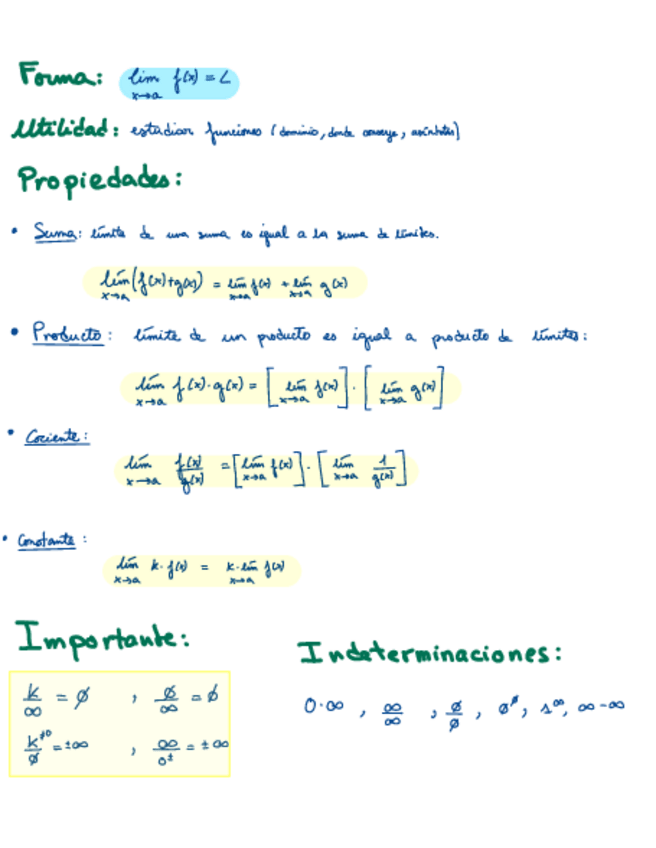 Forma: lim x→a f(x) = L
Utilidad: estudiar funciones (dominio, donde converge, asíntotas)
Propiedades:
• Suma: límite de una suma es igual a la suma de límites.
lím x→a (f(x)+g(x)) = lím x→a f(x) + lím x→a g(x)
• Producto: límite de un producto es igual a producto de límites:
lím x→a f(x)·g(x) = [lím x→a f(x)] · [lím x→a g(x)]
• Cociente:
lím x→a f(x)/g(x) = [lím x→a f(x)] · [lím x→a 1/g(x)]
• Constante:
lím x→a k·f(x) = k·lím x→a f(x)
Importante:
k/∞ = ∅ , ∅/∞ = ∅
k^≠0/∅ = ±∞ , ∞/0^± = ±∞
Indeterminaciones:
0·∞ , ∞/∞ , ∅/∅ , ∅^∅, 1^∞, ∞-∞